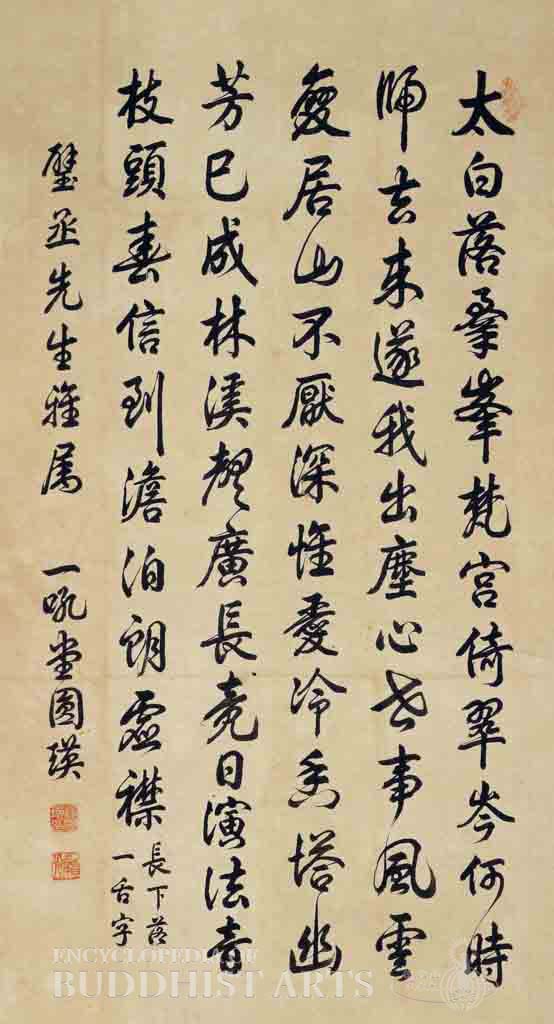 太白落羣峯梵宮倚翠岑何時
師去來遂我出塵心世事風雲
變居山不厭深惟愛冷香塔幽
芳已成林溪聲廣長竟日演法音
枝頭春信到澹泊朗虛襟
長下落
一舌字
璧丞先生雅属 一吼堂圓瑛
ENCYCLOPEDIA OF
BUDDHIST ARTS